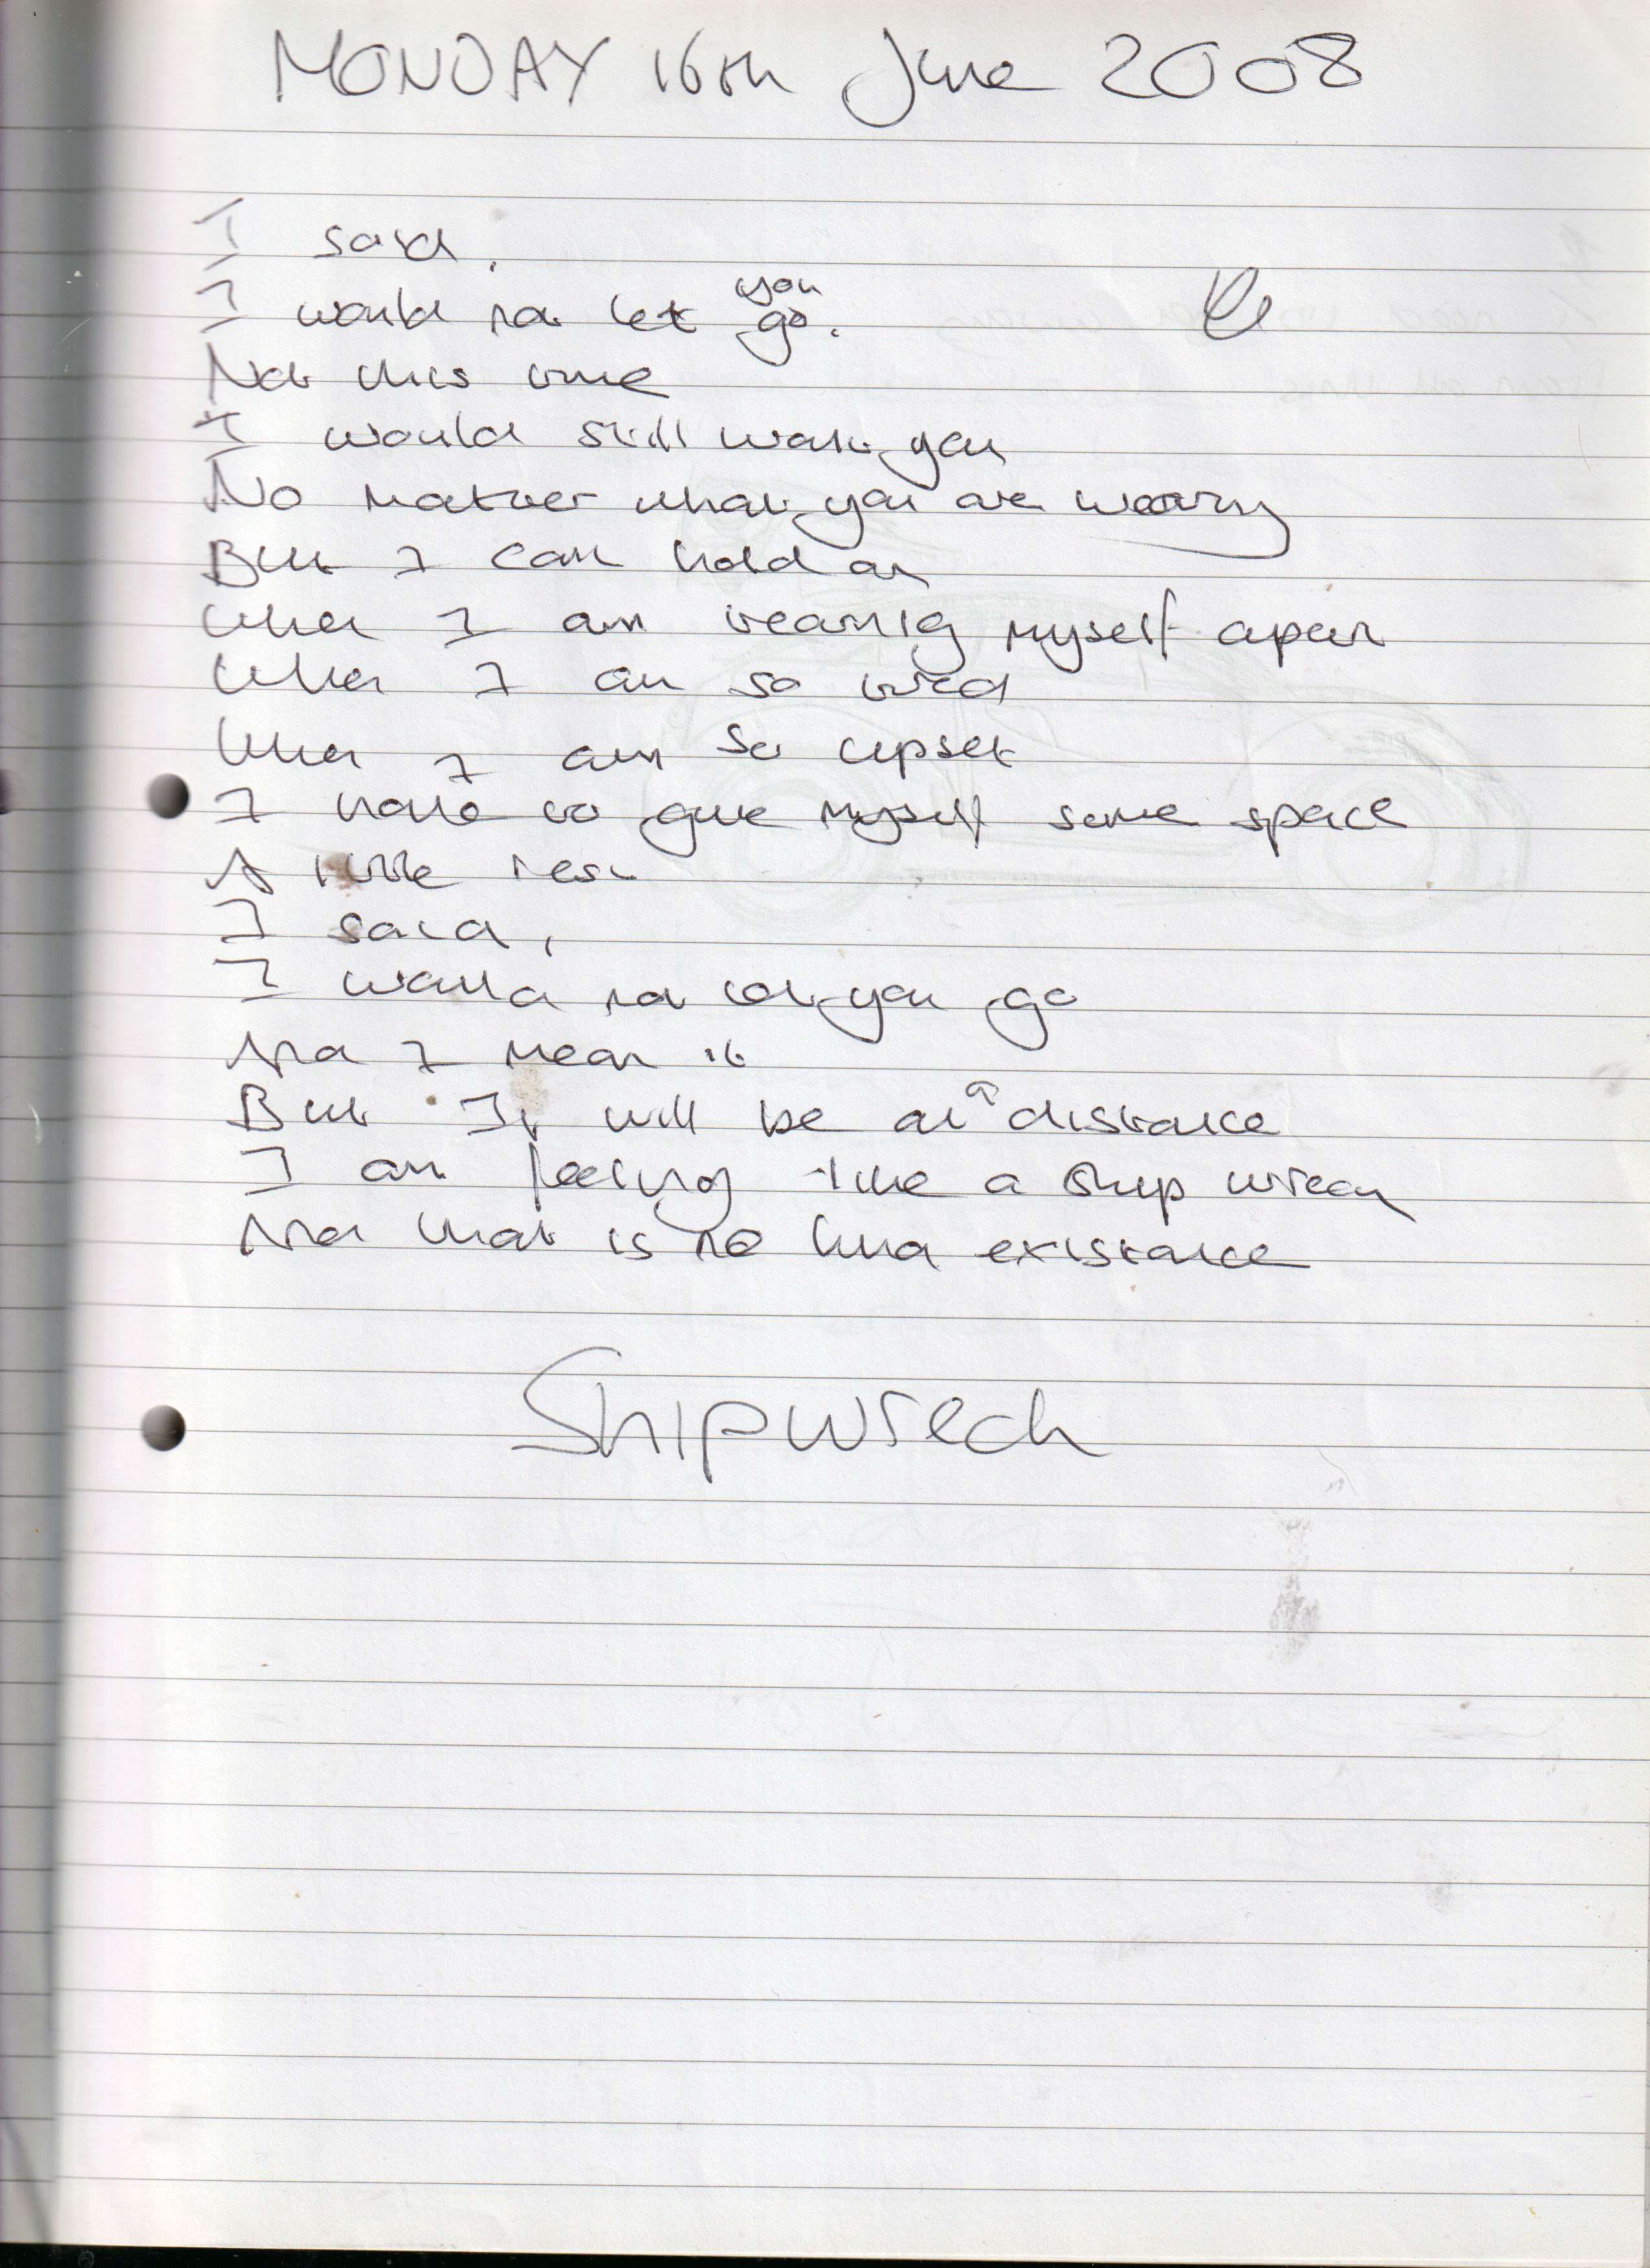 MONDAY 16th June 2008
I said,
I would not let you go.
Not this time
I would still want you
No matter what you are wearing
But I can hold on
When I am tearing myself apart
When I am so tired
When I am so upset
I have to give myself some space
A little rest
I said,
I would not let you go
And I mean it
But It will be at a distance
I am feeling like a ship wreck
And that is no kind existance
Shipwreck